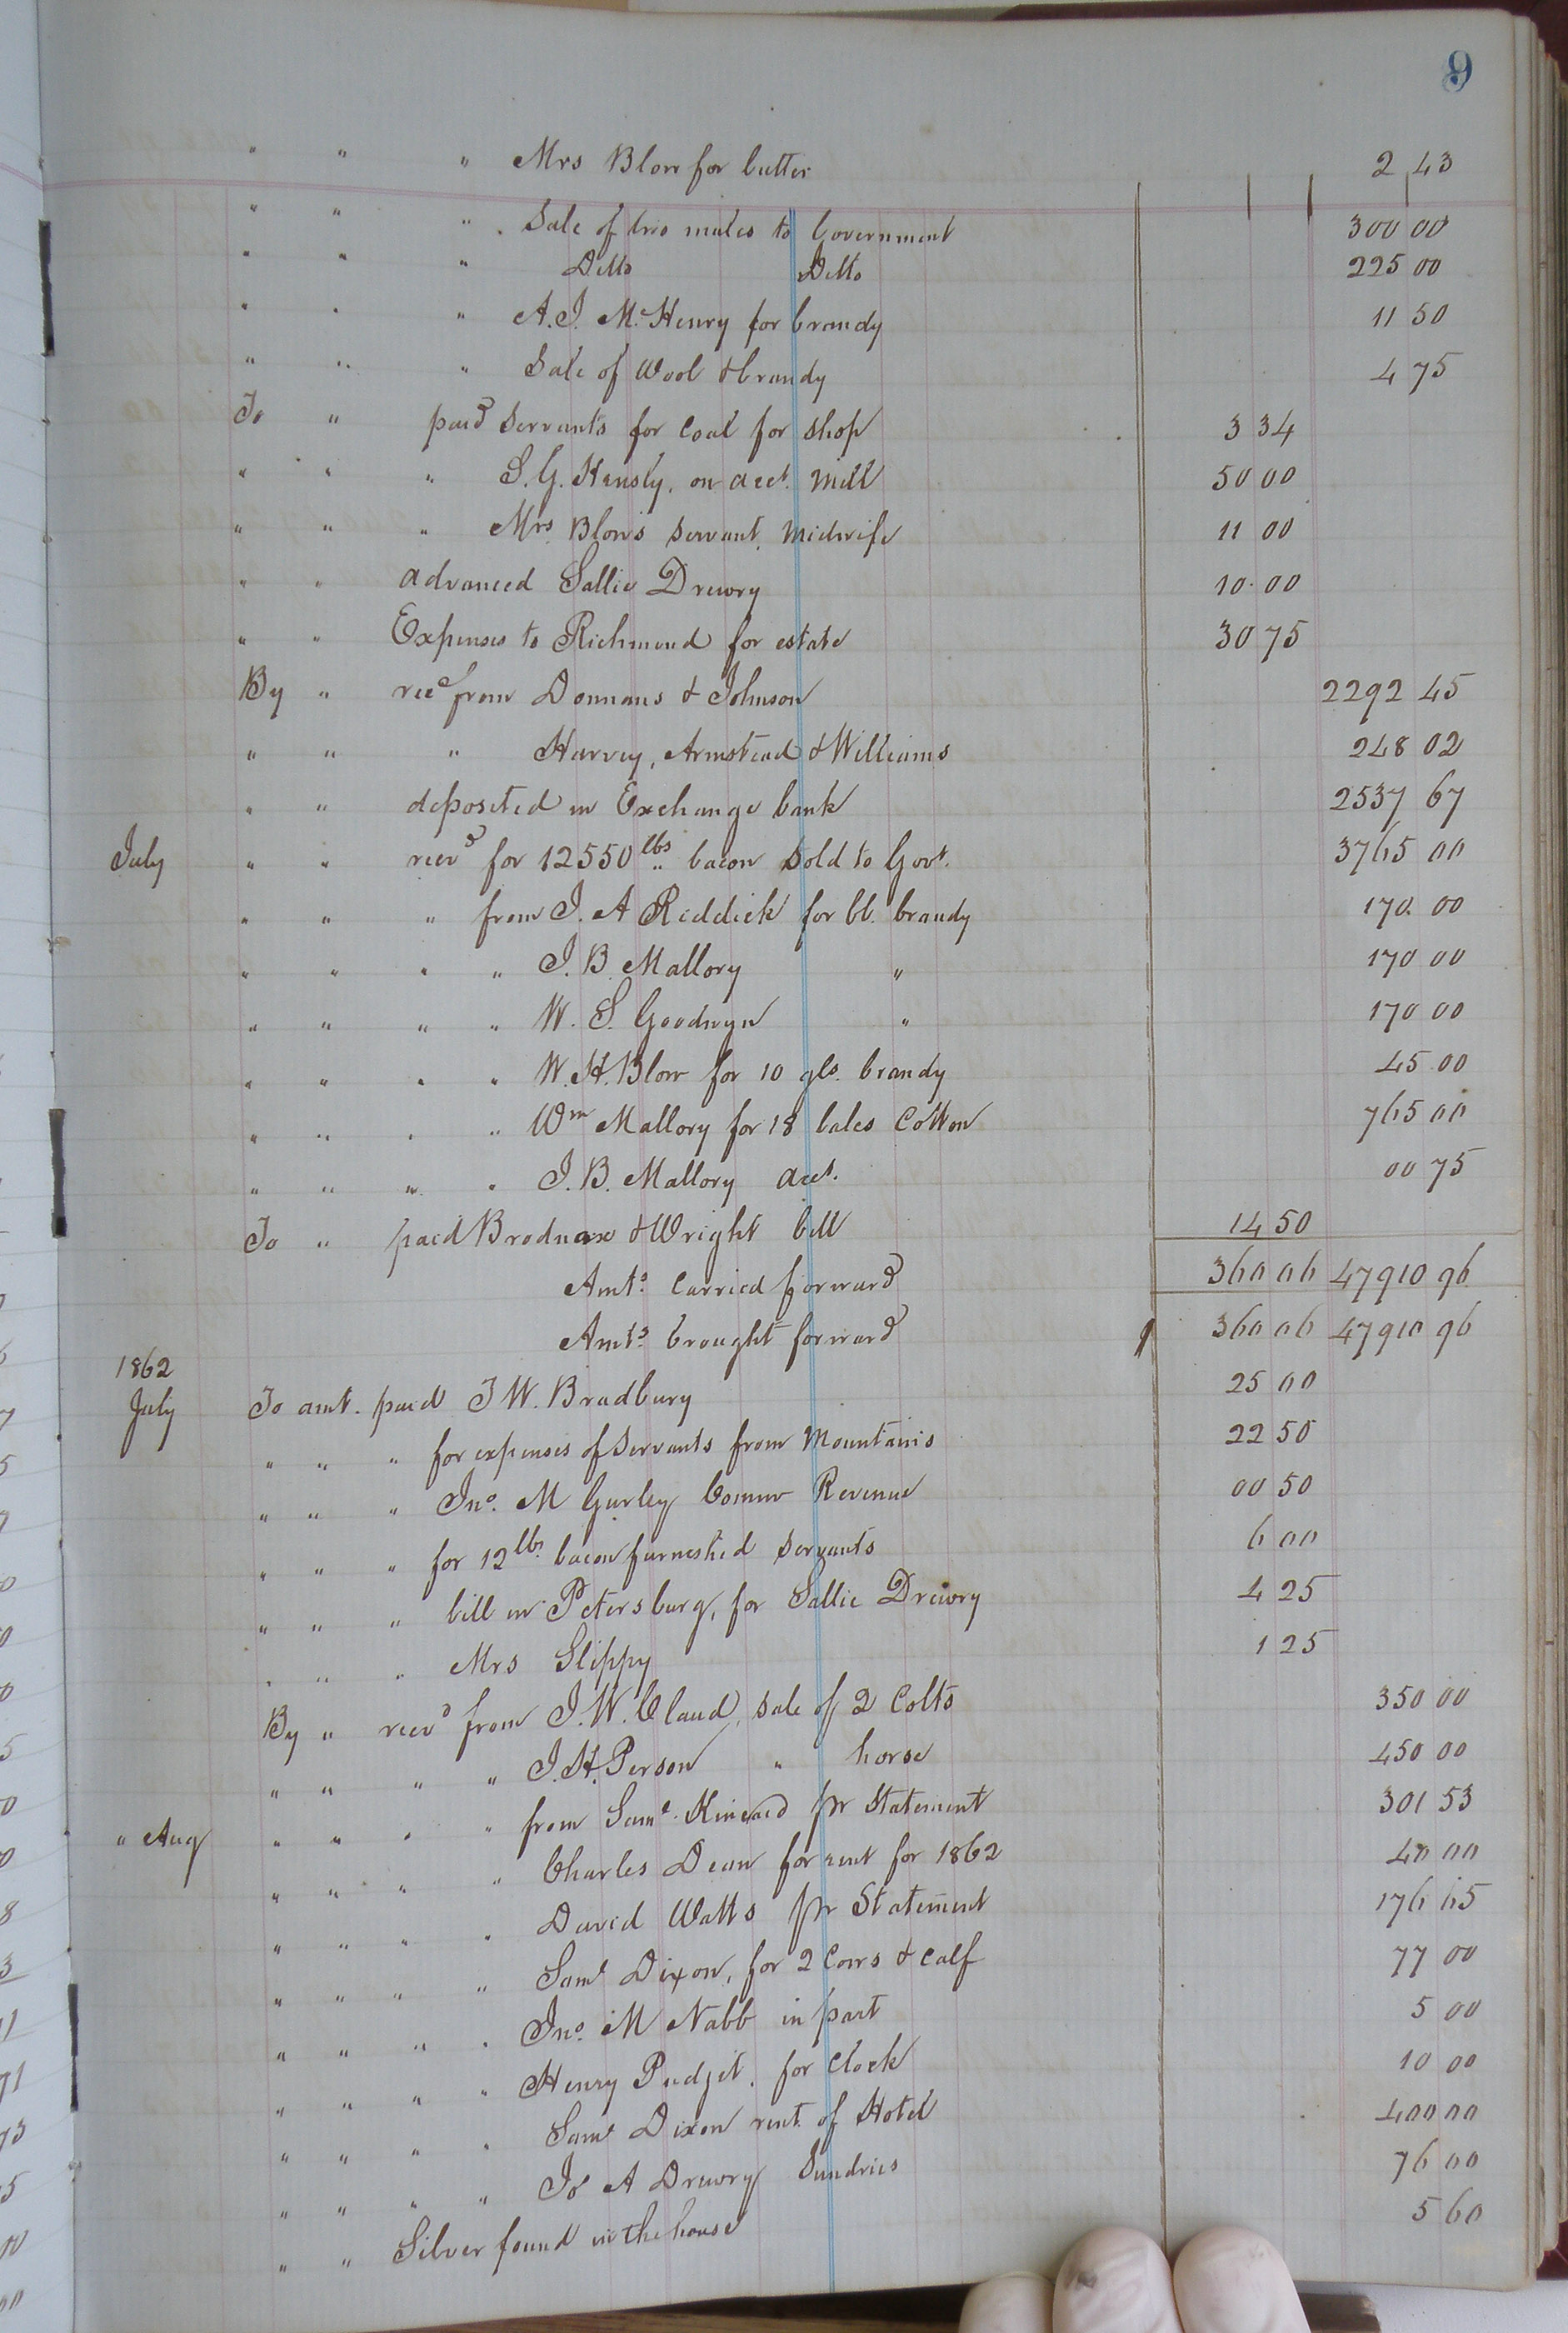 9
" " " Mrs Blow for butter 2 43
" " " Sale of two mules to Government 300 00
" " " Ditto Ditto 225 00
" " " A. J. McHenry for brandy 11 50
" " " Sale of Wool & brandy 4 75
To " paid Servants for coal for shop 3 34
" " " S. G. Hensly, on acct. Mill 50 00
" " " Mrs. Blow's Servant, Midwife 11 00
" " advanced Sallie Drewry 10.00
" " Expenses to Richmond for estate 30 75
By " recd from Donnans & Johnson 2292 45
" " " Harvey, Armstead & Williams 248 02
" " deposited in Exchange bank 2537 67
July " " recvd for 12550 lbs bacon sold to Govt. 3765 00
" " " from J. A Riddick for bb. brandy 170. 00
" " " " J. B. Mallory " 170 00
" " " " W. S. Goodwyn " 170 00
" " " " W. H. Blow for 10 gls. brandy 45 00
" " " " Wm Mallory for 18 bales Cotton 765 00
" " " " J. B. Mallory acct. 00 75
To " paid Brodnax & Wright bill 14 50
Amts. Carried forward 360 06 47910 96
Amts. brought forward 360 06 47910 96
1862
July To amt. paid J W. Bradbury 25 00
" " " for expenses of Servants from Mountains 22 50
" " " Jno. M Gurley Commr Revenue 00 50
" " " for 12 lbs. bacon furnished servants 6 00
" " " bill in Petersburg, for Sallie Drewry 4 25
" " " Mrs Slippy 1 25
By " recvd from J. W. Claud, sale of 2 Colts 350 00
" " " " J. H. Person " horse 450 00
" Aug " " " " from Saml. Kincaid pr Statement 301 53
" " " " Charles Dean for rent for 1862 40 00
" " " " David Watts pr Statement 176 65
" " " " Saml Dixon, for 2 Cows & calf 77 00
" " " " Jno. M Nabb in part 5 00
" " " " Henry Pudjit, for Clock 10 00
" " " " Saml Dixon rent of Hotel 400 00
" " " " Jo A Drewry Sundries 76 00
" " Silver found in the house 5 60